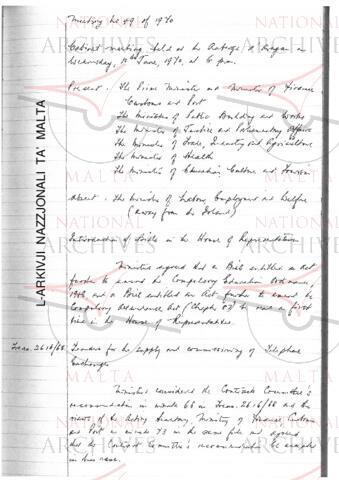 Meeting No 49 of 1970
Cabinet meeting held at the Auberge d'Aragon on
Wednesday, 10th June, 1970, at 6 p.m.
Present. The Prime Minister and Minister of Finance
Customs and Port
The Minister of Public Building and Works
The Minister of Justice and Parliamentary Affairs
The Minister of Trade, Industry and Agriculture
The Minister of Health
The Minister of Education, Culture and Tourism
Absent. The Minister of Labour, Employment and Welfare
(away from the Island)
Introduction of Bills in the House of Representatives
Ministers agreed that a Bill entitled an Act
further to amend the Compulsory Education Ordinance,
and a Bill entitled an Act further to amend the
Compulsory Attendance Act (Chapter) be read a first
time in the House of Representatives.
Trans. 2616/68 Tenders for the supply and commissioning of Telephone
Exchanges
Ministers considered the Contracts Committee's
recommendation in minute 66 in Trans. 2616/68 and the
views of the Acting Secretary, Ministry of Finance, Customs
and Port in minute 73 in the same file and agreed
that the Contracts Committee's recommendation be accepted
in this case.
L-ARKIVJI NAZZJONALI TA' MALTA
NATIONAL
ARCHIVES
MALTA